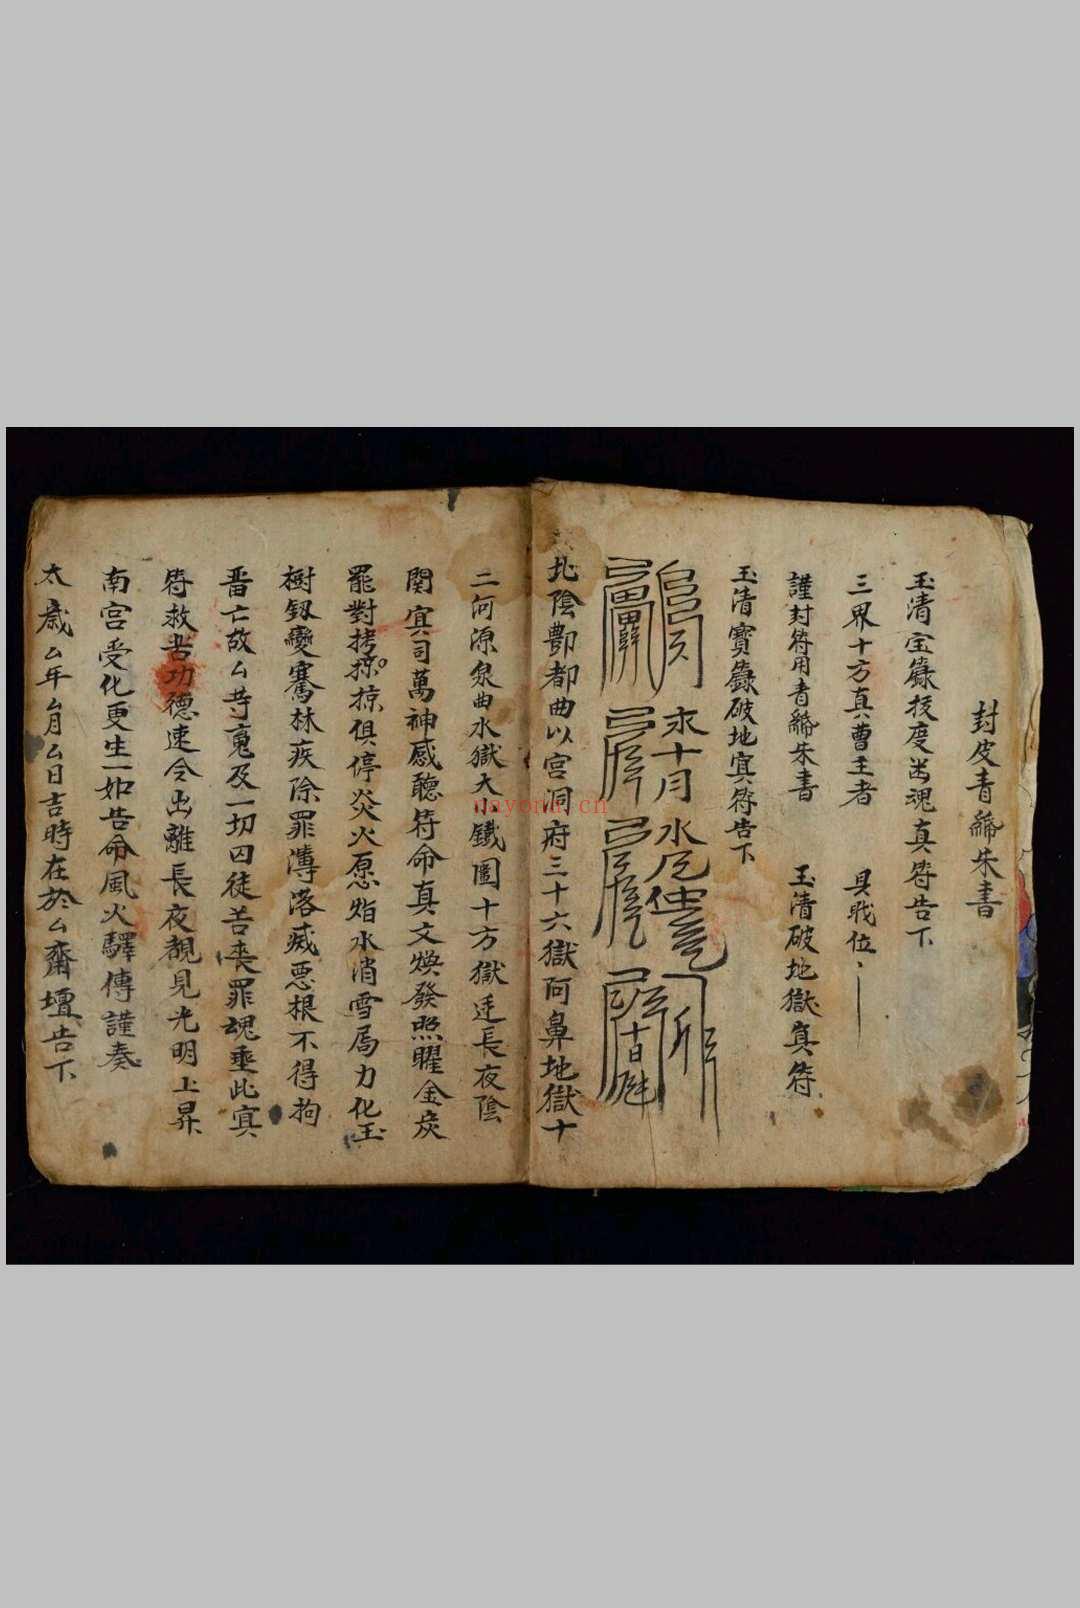 封皮青締朱書
玉清宝籙拔度幽魂真符告下
三界十方真曹主者 具戝位
謹封符用青締朱書 玉清破地獄真符
玉清寳籙破地㝠符告下
北陰酆都曲以宮洞府三十六獄阿鼻地獄十
二河源泉曲水獄大鐵圍十方獄迋長夜陰
関㝠司萬神感聽符命真文煥發照曜金炭
罷對拷掠掠俱停炎火愿焰水消雪局力化玉
樹釼變騫林疾除罪溥落滅惡根不得拘
晋亡故厶等䰟及一切囚徒苦丧罪魂垂此㝠
符救苦功德速令出離長夜覩見光明上昇
南宮受化更生一如告命風火驛傳謹奏
太歲厶年厶月厶日吉時在於厶齋壇告下
nayona.cn